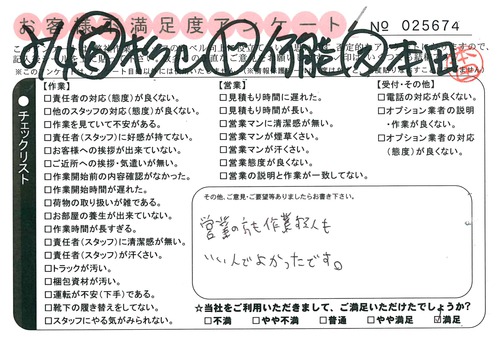 お客様不満足度アンケート
No 025674
チェックリスト
【作業】
□責任者の対応(態度)が良くない。
□他のスタッフの対応(態度)が良くない。
□作業を見ていて不安がある。
□責任者(スタッフ)に好感が持てない。
□お客様への挨拶が出来ていない。
□ご近所への挨拶・気遣いが無い。
□作業開始前の内容確認がなかった。
□作業開始時間が遅れた。
□荷物の取り扱いが雑である。
□お部屋の養生が出来ていない。
□作業時間が長すぎる。
□責任者(スタッフ)に清潔感が無い。
□責任者(スタッフ)が汗くさい。
□トラックが汚い。
□梱包資材が汚い。
□運転が不安(下手)である。
□靴下の履き替えをしてない。
□スタッフにやる気がみられない。
【営業】
□見積もり時間に遅れた。
□見積もり時間が長い。
□営業マンに清潔感が無い。
□営業マンが煙草くさい。
□営業マンが汗くさい。
□営業態度が良くない。
□営業の説明と作業が一致してない。
【受付・その他】
□電話の対応が良くない。
□オプション業者の説明
・作業が良くない。
□オプション業者の対応
(態度)が良くない。
その他、ご意見・ご要望等ありましたらお書き下さい。
営業の方も作業する人も
いい人でよかったです。
☆当社をご利用いただきまして、ご満足いただけたでしょうか?
□不満 □やや不満 □普通 □やや満足 ☑満足